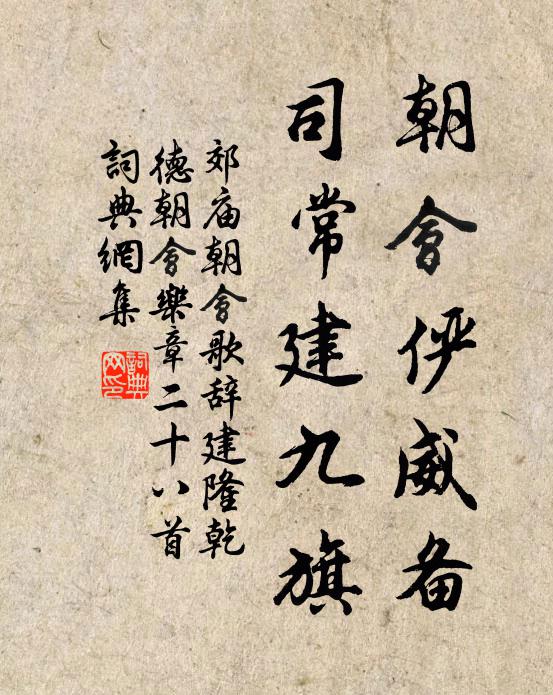 朝會俨威备
司常建九旗
郊庙朝會歌辞建隆乾
德朝會樂章二十八首
詞典網集
詞典網印